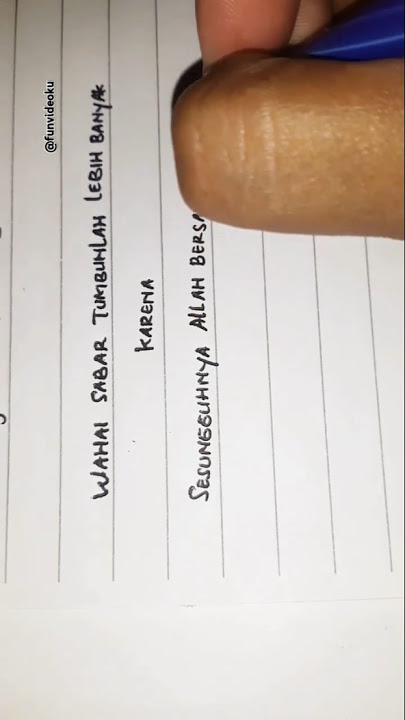 @funvideoku
WAHAI SABAR TUMBUHLAH LEBIH BANYAK
KARENA
SESUNGGUHNYA ALLAH BERSA